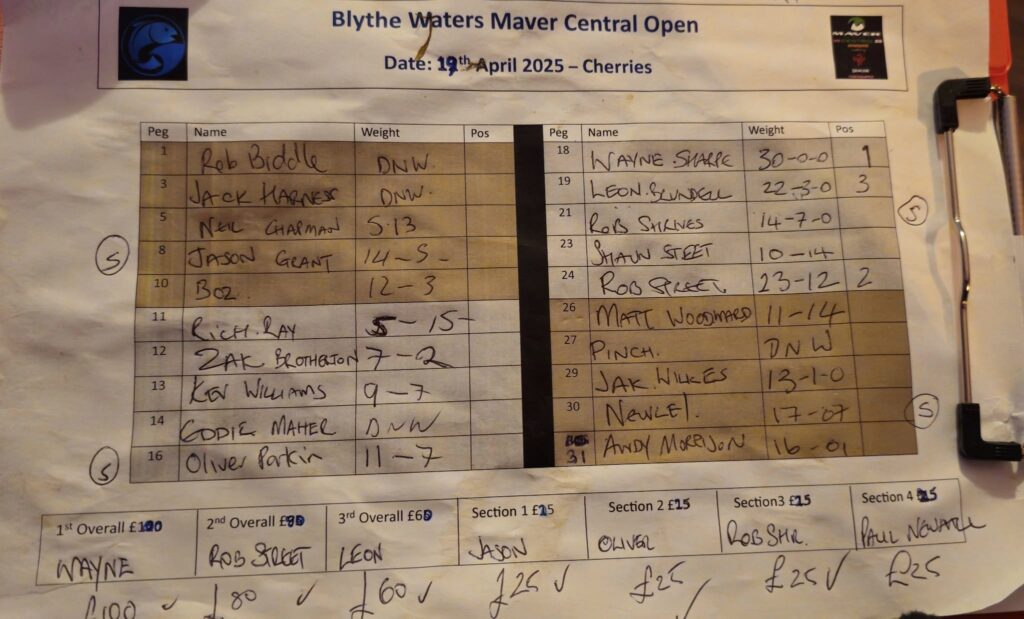 Blythe Waters Maver Central Open
Date: 19th April 2025 – Cherries
MAVER
Peg Name Weight Pos
1 Rob Biddle DNW.
3 JACK HARNESS DNW.
5 NEIL CHAPMAN 5-13
S 8 JASON GRANT 14-5-
10 BOZ. 12-3
11 RICH.RAY 5-15-
12 ZAK BROTHERTON 7-2
13 KEV WILLIAMS 9-7
14 EDDIE MAHER DNW
S 16 Oliver Parkin 11-7
Peg Name Weight Pos
18 WAYNE SHARPE 30-0-0 1
19 LEON.BLUNDELL 22-3-0 3
21 ROB 14-7-0 S
23 SHAUN STEET 10-14
24 ROB STREET 23-12 2
26 MATT WOODWARD 11-14
27 PINCH. DNW
29 JAK.WILKES 13-1-0
30 17-07 S
31 ANDY MORRISON 16-01
1st Overall £100 2nd Overall £80 3rd Overall £60 Section 1 £25 Section 2 £25 Section3 £25 Section 4 £25
WAYNE ROB STREET LEON JASON OLIVER ROB SHR. PAUL
£100 ✓ £80 ✓ £60 ✓ £25 ✓ £25 ✓ £25 ✓ £25